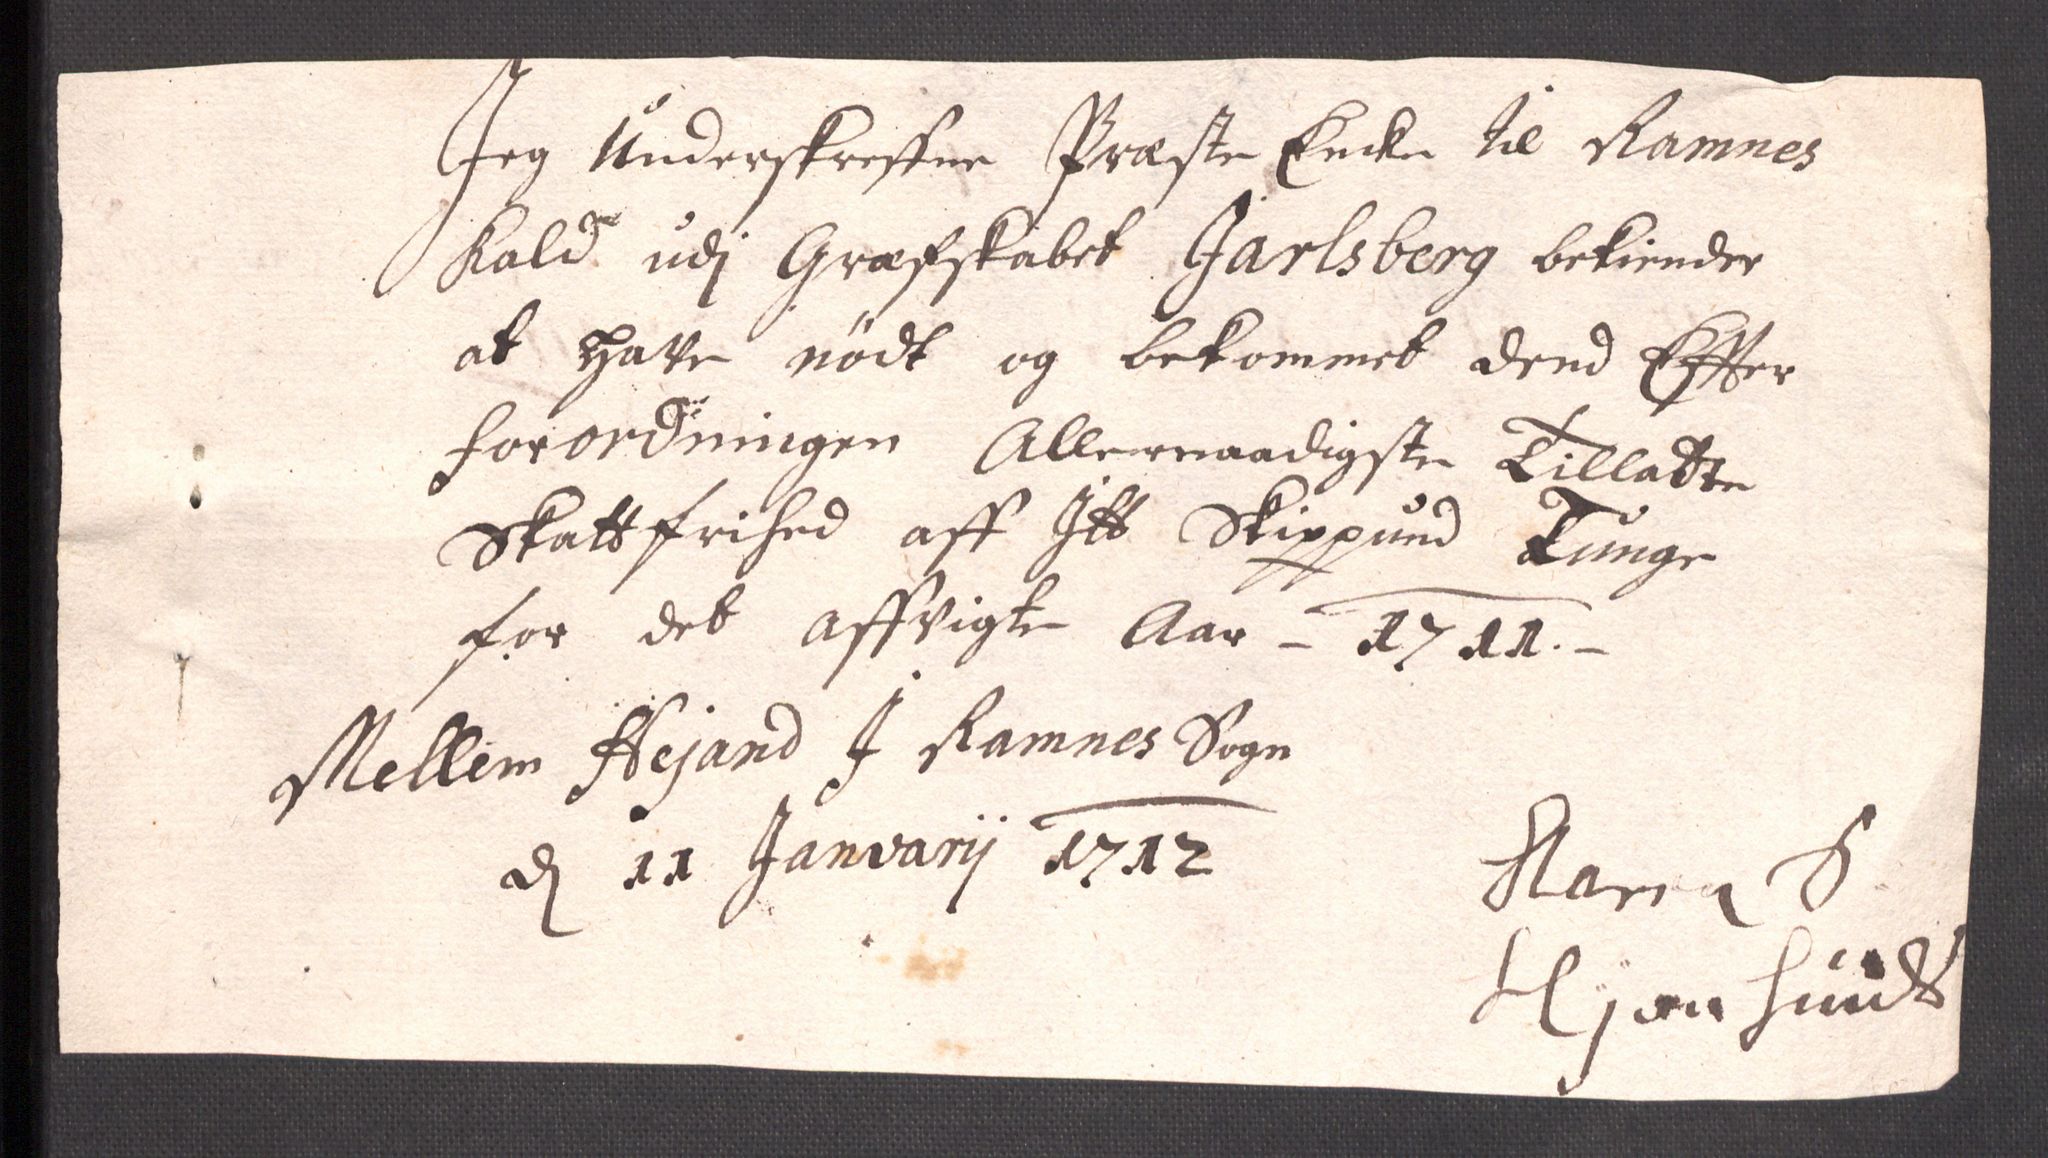 Jeg Underskrefne Præste Encke til Ramnes
Kald udj Græfskabet Jarlsberg bekiender
at Have nödt og bekommet dend Effter
forordningen Allernaadigste Tilladte
Skattfrihed aff Itt Skippund Tunge
for det affvigte Aar - 1711. -
Mellem Hejand J Ramnes Sogn
dj 11 Janvarij 1712
Maren S